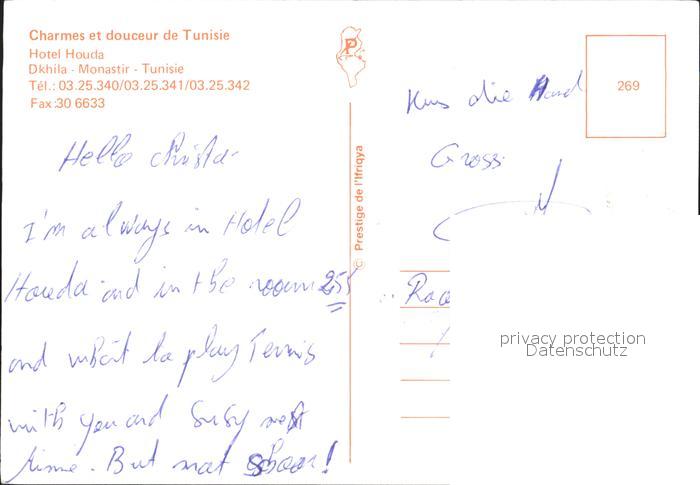 Charmes et douceur de Tunisie
Hotel Houda
Dkhila - Monastir - Tunisie
Tél.: 03.25.340/03.25.341/03.25.342
Fax :30 6633
Hello christa
I'm always in Hotel
Houda and in the room 255
and want to play Tennis
with you and Susy next
time. But not soon!
© Prestige de l'Ifriqya
P
269
Kus die Hand
Gross
privacy protection
Datenschutz